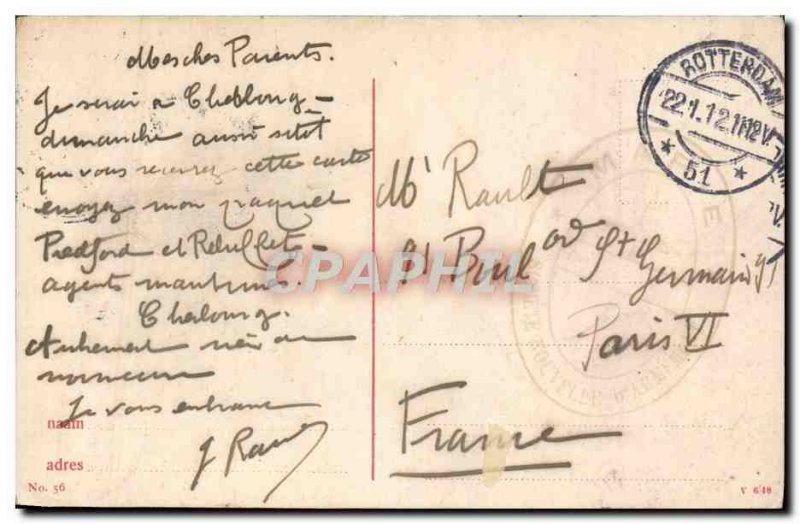 Mes chers Parents.
Je serai a Cherbourg
dimanche aussi sitôt
que vous recevrez cette carte
envoyez mon paquet
et
agents maritimes.
Cherbourg.
Autrement rien de
nouveau
Je vous embrasse
J Rault
naam
adres
No. 56
ROTTERDAM
22.1.12.11-12V.
* 51 *
Mr Rault
Boulord St Germain 91
Paris VI
France
V 6/18
CPARPHIL